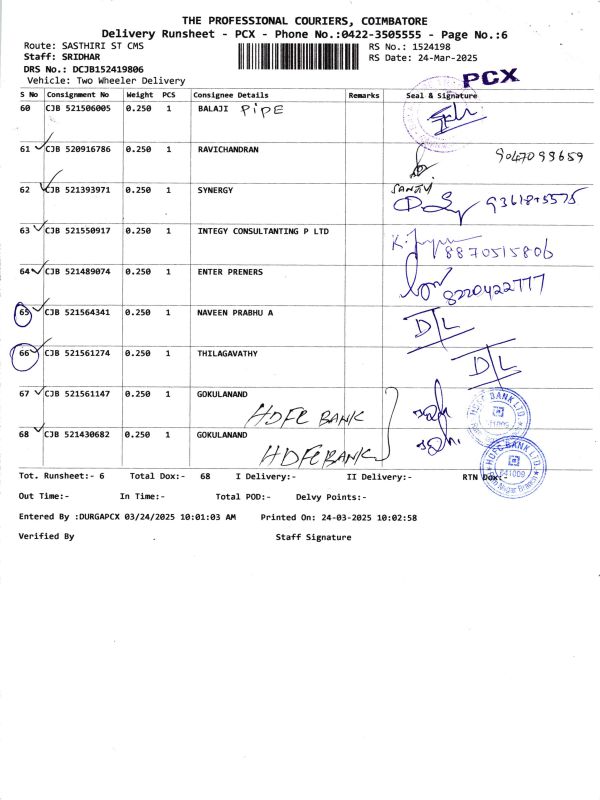 THE PROFESSIONAL COURIERS, COIMBATORE
Delivery Runsheet - PCX - Phone No.:0422-3505555 - Page No.:6
Route: SASTHIRI ST CMS RS No.: 1524198
Staff: SRIDHAR RS Date: 24-Mar-2025
DRS No.: DCJB152419806
Vehicle: Two Wheeler Delivery
PCX
S No Consignment No Weight PCS Consignee Details Remarks Seal & Signature
60 CJB 521506005 0.250 1 BALAJI PIPE
61 CJB 520916786 0.250 1 RAVICHANDRAN
62 CJB 521393971 0.250 1 SYNERGY
63 CJB 521550917 0.250 1 INTEGY CONSULTANTING P LTD
8870515806
64 CJB 521489074 0.250 1 ENTER PRENERS
8220422777
65 CJB 521564341 0.250 1 NAVEEN PRABHU A D/L
66 CJB 521561274 0.250 1 THILAGAVATHY D/L
67 CJB 521561147 0.250 1 GOKULANAND
HDFC BANK
HDFC BANK LTD.
68 CJB 521430682 0.250 1 GOKULANAND
HDFC BANK
HDFC BANK LTD.
641009
Tot. Runsheet:- 6 Total Dox:- 68 I Delivery:- II Delivery:- RTN Dox:-
Out Time:- In Time:- Total POD:- Delvy Points:-
Entered By :DURGAPCX 03/24/2025 10:01:03 AM Printed On: 24-03-2025 10:02:58
Verified By Staff Signature